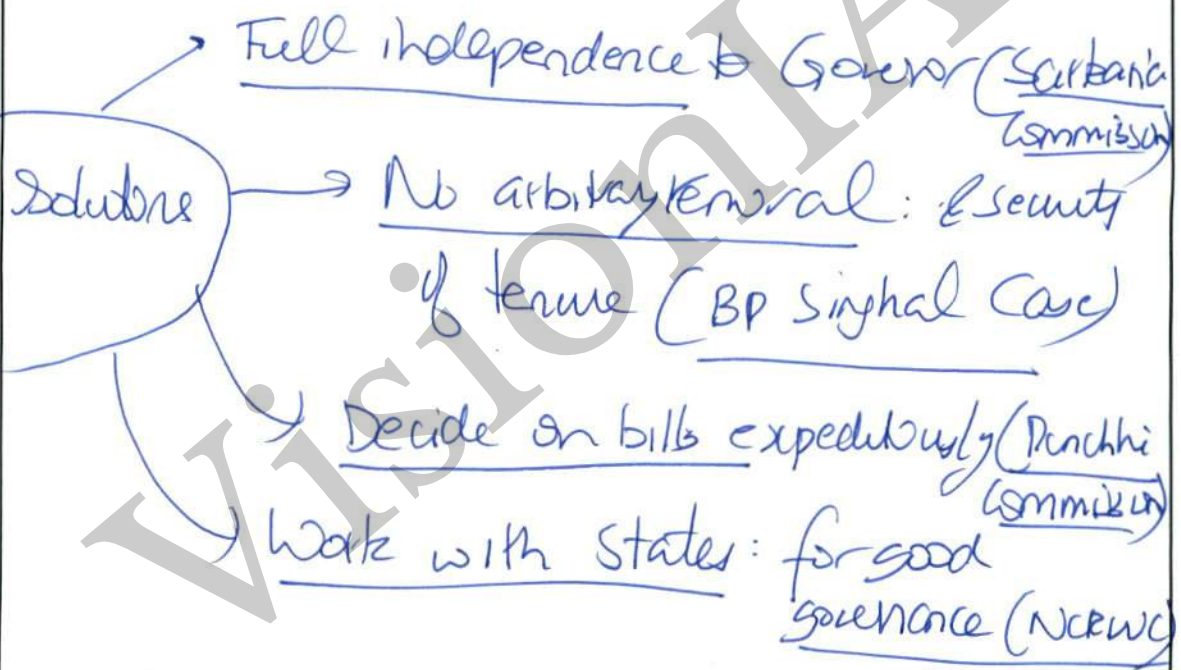 Full independence to Governor (Sarkaria
Commission)
Solutions
No arbitrary removal: & security
of tenure (BP Singhal Case)
Decide on bills expeditiously (Punchhi
Commission)
Work with States: for good
governance (NCRWC)
VisionIA